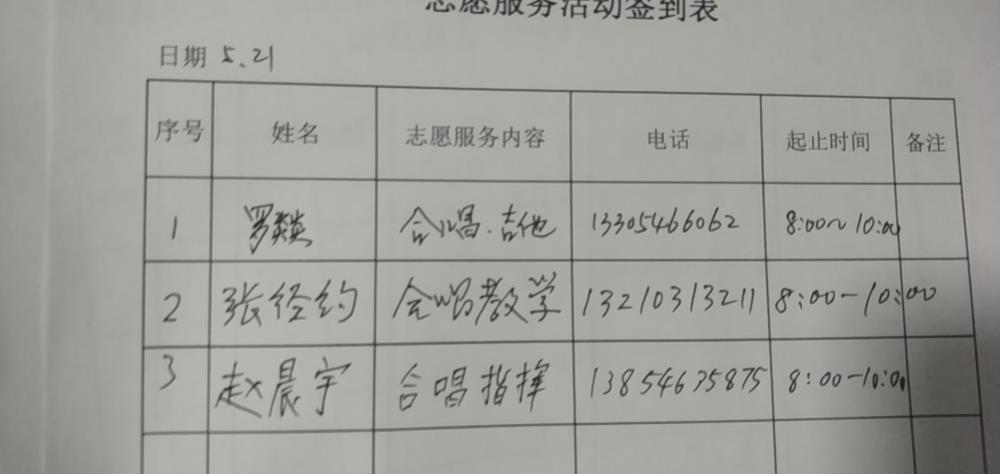 志愿服务活动签到表
日期 5.21
序号 姓名 志愿服务内容 电话 起止时间 备注
1 罗燚 合唱.吉他 13305466062 8:00~10:00
2 张经约 合唱教学 13210313211 8:00-10:00
3 赵晨宇 合唱指挥 13854675875 8:00-10:00